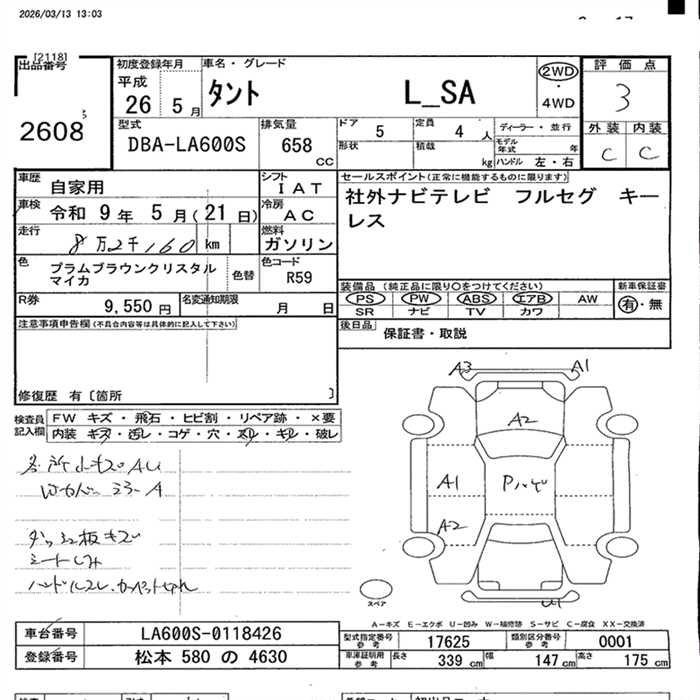 2026/03/13 13:03
[2118]
出品番号
2608
初度登録年月
平成
26 5月
車名・グレード
タント L_SA
2WD
・
4WD
評価点
3
外装 内装
C C
型式
DBA-LA600S
排気量
658
CC
ドア 5
定員 4 人
ディーラー・並行
形状
積載 kg
モデル年式 年
ハンドル 左・右
車歴 自家用
シフト IAT
車検 令和 9年 5月(21日)
冷房 AC
走行 8万2千160 km
燃料 ガソリン
色 プラムブラウンクリスタル
マイカ
色替
色コード R59
R券 9,550 円
名変通知期限 月 日
セールスポイント(正常に機能するものに限ります)
社外ナビテレビ フルセグ キー
レス
装備品 (純正品に限り○をつけてください)
新車保証書
PS PW ABS エアB AW
SR ナビ TV カワ
有・無
後日品 保証書・取説
注意事項申告欄(不具合内容等は具体的に記入して下さい)
修復歴 有〔箇所 〕
検査員記入欄
FW キズ・飛石・ヒビ割・リペア跡・×要
内装 キズ・汚レ・コゲ・穴・スレ・キレ・破レ
A3 A1
A2
A1
A2
U1
スペア
A-キズ E-エクボ U-凹み W-補修跡 S-サビ C-腐食 XX-交換済
車台番号 LA600S-0118426
登録番号 松本 580 の 4630
型式指定番号参考 17625
類別区分番号参考 0001
車庫証明用参考 長さ 339 cm 幅 147 cm 高さ 175 cm